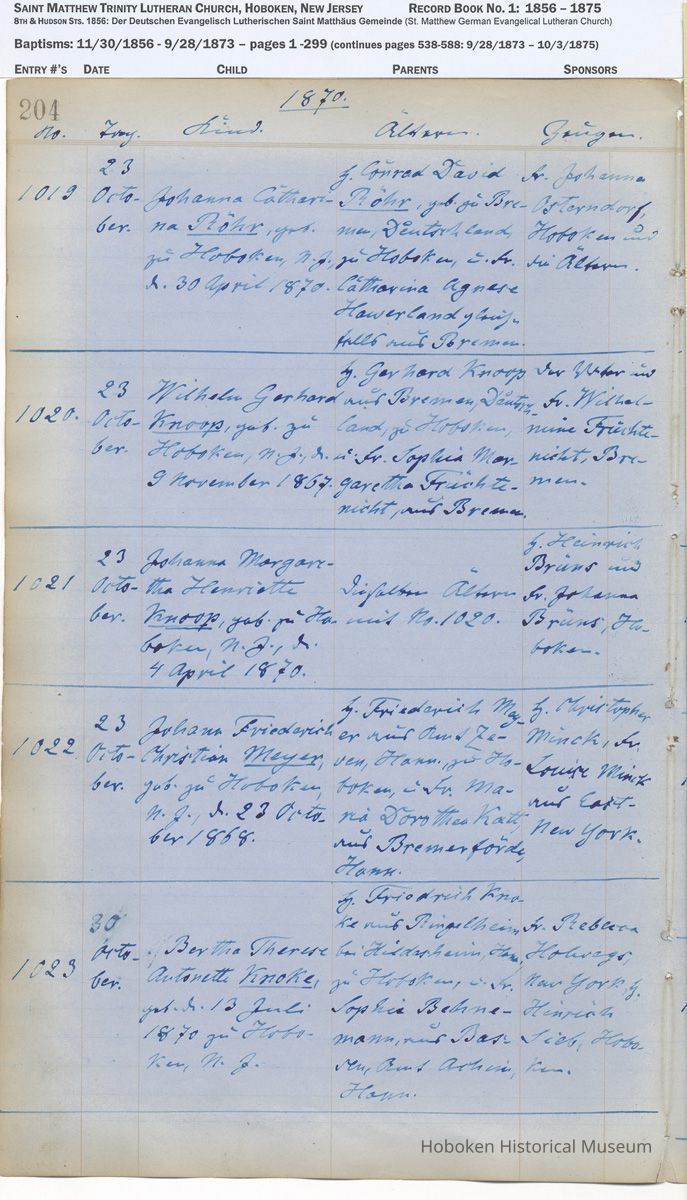 SAINT MATTHEW TRINITY LUTHERAN CHURCH, HOBOKEN, NEW JERSEY RECORD BOOK NO. 1: 1856 – 1875
8TH & HUDSON STS. 1856: Der Deutschen Evangelisch Lutherischen Saint Matthäus Gemeinde (St. Matthew German Evangelical Lutheran Church)
Baptisms: 11/30/1856 - 9/28/1873 – pages 1 -299 (continues pages 538-588: 9/28/1873 – 10/3/1875)
ENTRY #'S DATE CHILD PARENTS SPONSORS
204
1870.
No. Tag. Kind. Ältern. Zeugen.
1019
23
Octo-
ber.
Johanna Cathari-
na Röhr, geb.
zu Hoboken, N. J.,
d. 30 April 1870.
H. Conrad David
Röhr, geb. zu Bre-
men, Deutschland,
zu Hoboken, u. Fr.
Catharina Agnese
Hawerland gleich-
falls aus Bremen.
Fr. Johanna
Osterndorf,
Hoboken und
die Ältern.
1020.
23
Octo-
ber.
Wilhelm Gerhard
Knoop, geb. zu
Hoboken, N. J., d.
9 November 1867.
H. Gerhard Knoop
aus Bremen, Deutsch-
land, zu Hoboken,
u. Fr. Sophia Mar-
garetha Früchte-
nicht, aus Bremen.
Der Vater und
Fr. Wilhel-
mine Früchte-
nicht, Bre-
men.
1021
23
Octo-
ber.
Johanna Margare-
tha Henriette
Knoop, geb. zu Ho-
boken, N. J., d.
4 April 1870.
Dieselben Ältern
mit No. 1020.
H. Heinrich
Brüns und
Fr. Johanna
Brüns, Ho-
boken.
1022
23
Octo-
ber.
Johann Friederich
Christian Meyer,
geb. zu Hoboken,
N. J., d. 23 Octo-
ber 1868.
H. Friederich Mey-
er aus Amt Ze-
ven, Hann., zu Ho-
boken, u. Fr. Ma-
ria Dorothea Katt,
aus Bremerförde,
Hann.
H. Christopher
Minck, Fr.
Louise Minck
aus East-
New York.
1023
30
Octo-
ber.
Bertha Therese
Antonette Knoke,
geb. d. 13 Juli
1870 zu Hobo-
ken, N. J.
H. Friedrich Kno-
ke aus Ringelheim
bei Hildesheim, Han.,
zu Hoboken, u. Fr.
Sophia Behne-
mann, aus Bas-
sen, Amt Achim,
Hann.
Fr. Rebecca
New York, H.
Heinrich
Sieb, Hobo-
ken.
Hoboken Historical Museum